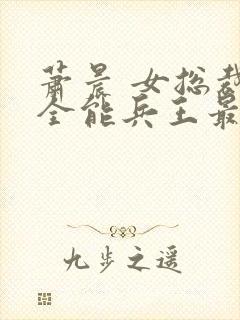 萧晨 女总裁
全能兵王最
九步之遥